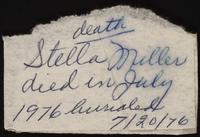 death
Stella Miller
died in July
1976 buried
7/20/76